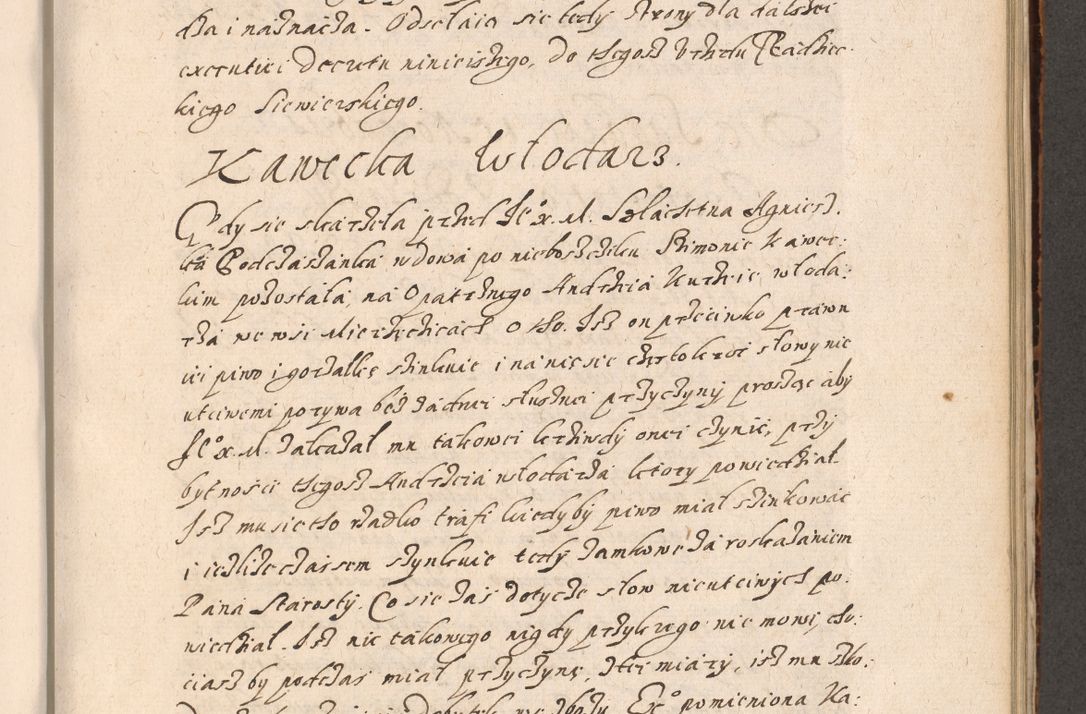 dza i naznacza. Odsełaią się tedy Strony dla dalszei
executiei Decretu ninieiszego, do thegosz Vrzędu Radziec
kiego Siewierskiego.
Kawecka Włodarz.
Gdy się skarzeła przed Je⁰ x. M. Szlachetna Agniesz.
ka Podczaszanka wdowa po nieboszczyku Szimonie Kawec:
kim pozostała, na Opatrznego Andrzia Kurzię, włoda:
rza we wsi Mierzęcicach o tho. Isz on przeciwko prawu
iei piwo i gorzałkę szinkuie i na nię się słowy nie
utciwemi porywa bez żadnei słusznei przyczyny prosząc aby
Je⁰ x. M. zakazał mu takowei krziwdy onei czynić, przy
bytności thegosz Andrzeia włodarza ktory powiedział
Isz mu się tho rzadko trafi kiedyby piwo miał szinkować
i iezliże czassem szynkuie tedy zamkowe za roskazaniem
Pana Starosty. Co się zaś dotycze słow nieutciwych po:
wiedział. Isz nic takowego nigdy przykrego nie mowi, cho:
ciasz by podczas miał przyczynę, ztei miary, isz mu szko:
pomieniona Ka: